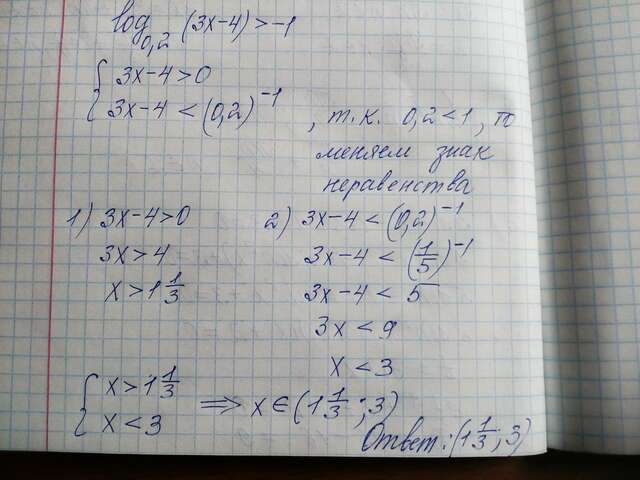 log₀,₂ (3x-4) > -1
{ 3x-4>0
3x-4 < (0,2)⁻¹
, т.к. 0,2<1, п
меняем знак
неравенства
1) 3x-4>0
3x>4
x>1 1/3
2) 3x-4 < (0,2)⁻¹
3x-4 < (1/5)⁻¹
3x-4 < 5
3x < 9
x < 3
{ x>1 1/3
x<3
⟹ x∈(1 1/3; 3)
Ответ: (1 1/3; 3)